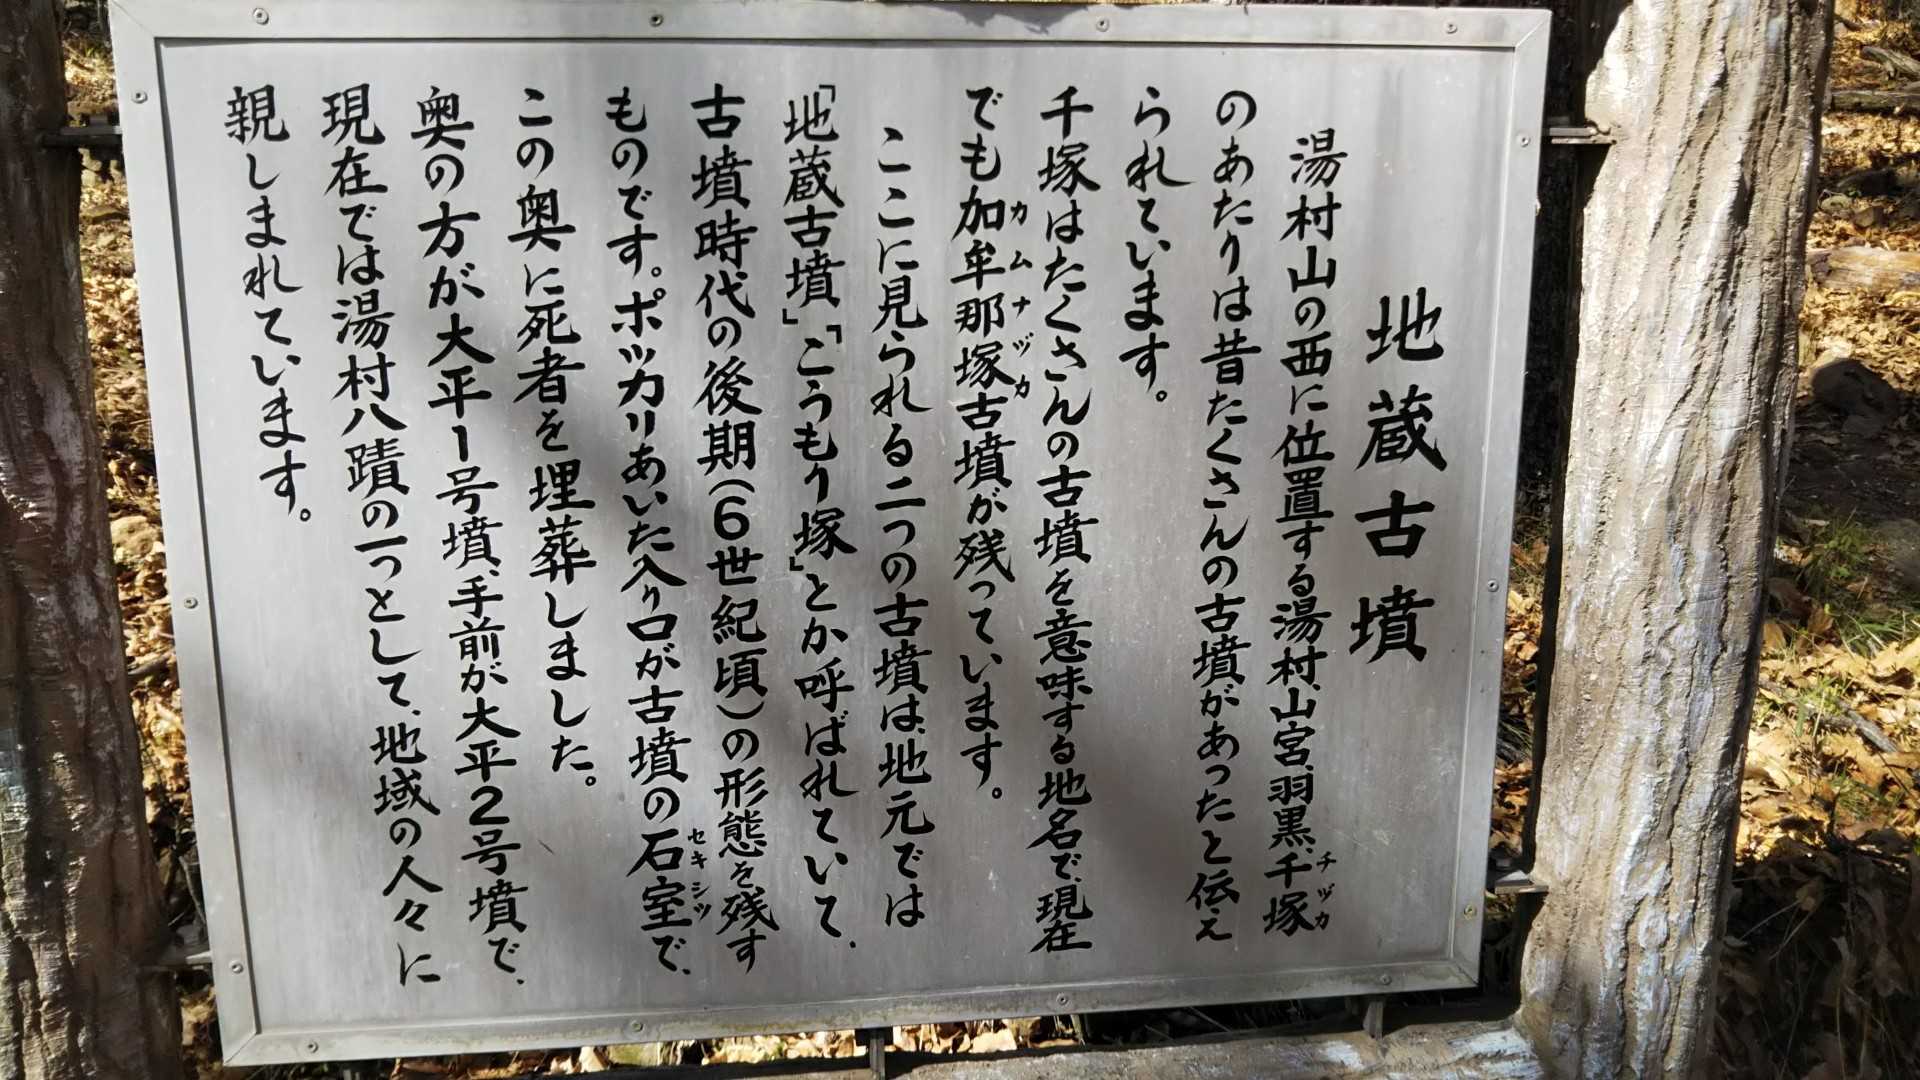 地蔵古墳
湯村山の西に位置する湯村、山宮、羽黒、千塚
チヅカ
のあたりは昔たくさんの古墳があったと伝え
られています。
千塚はたくさんの古墳を意味する地名で、現在
でも加牟那塚古墳が残っています。
カムナヅカ
ここに見られる二つの古墳は、地元では
「地蔵古墳」「こうもり塚」とか呼ばれていて、
古墳時代の後期(6世紀頃)の形態を残す
ものです。ポッカリあいた入り口が古墳の石室で、
セキシツ
この奥に死者を埋葬しました。
奥の方が大平1号墳、手前が大平2号墳で、
現在では湯村八蹟の一つとして、地域の人々に
親しまれています。